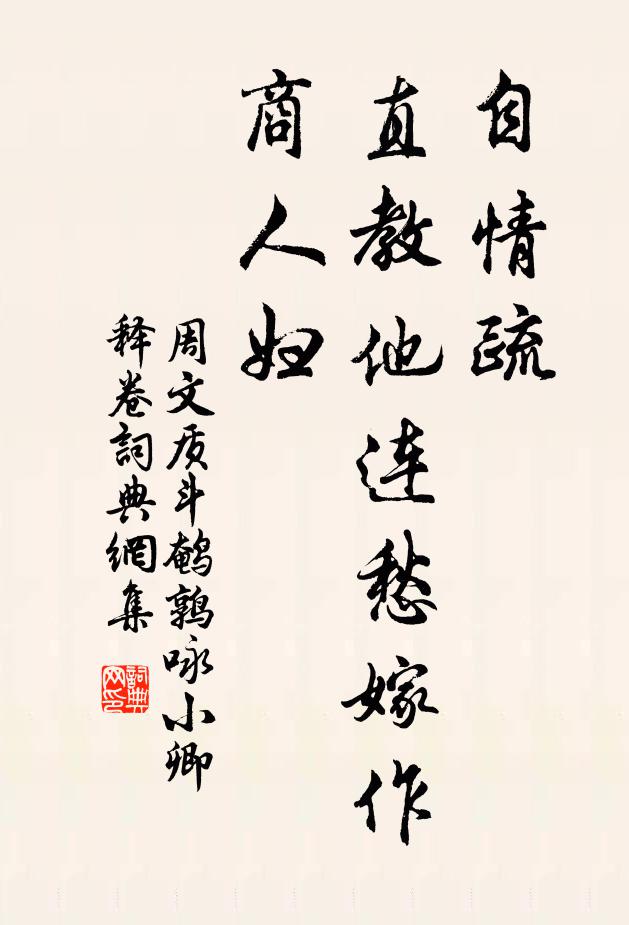 自情疏
直教他连愁嫁作
商人妇
周文质斗鹌鹑咏小卿
释卷詞典網集
詞典
网印